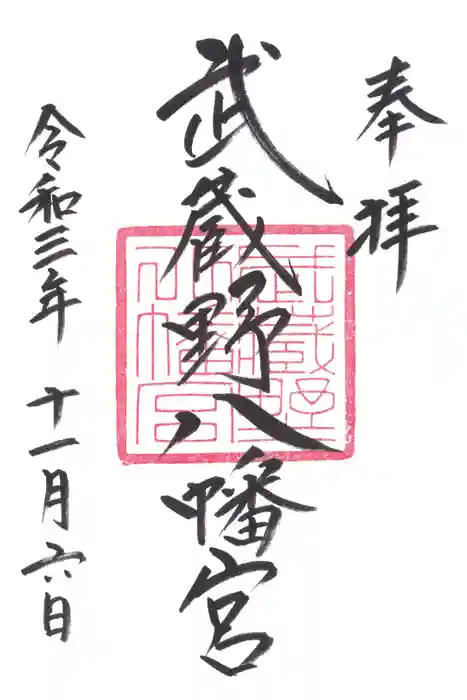 奉拝
武蔵野八幡宮
武蔵野
八幡宮
令和三年 十一月六日